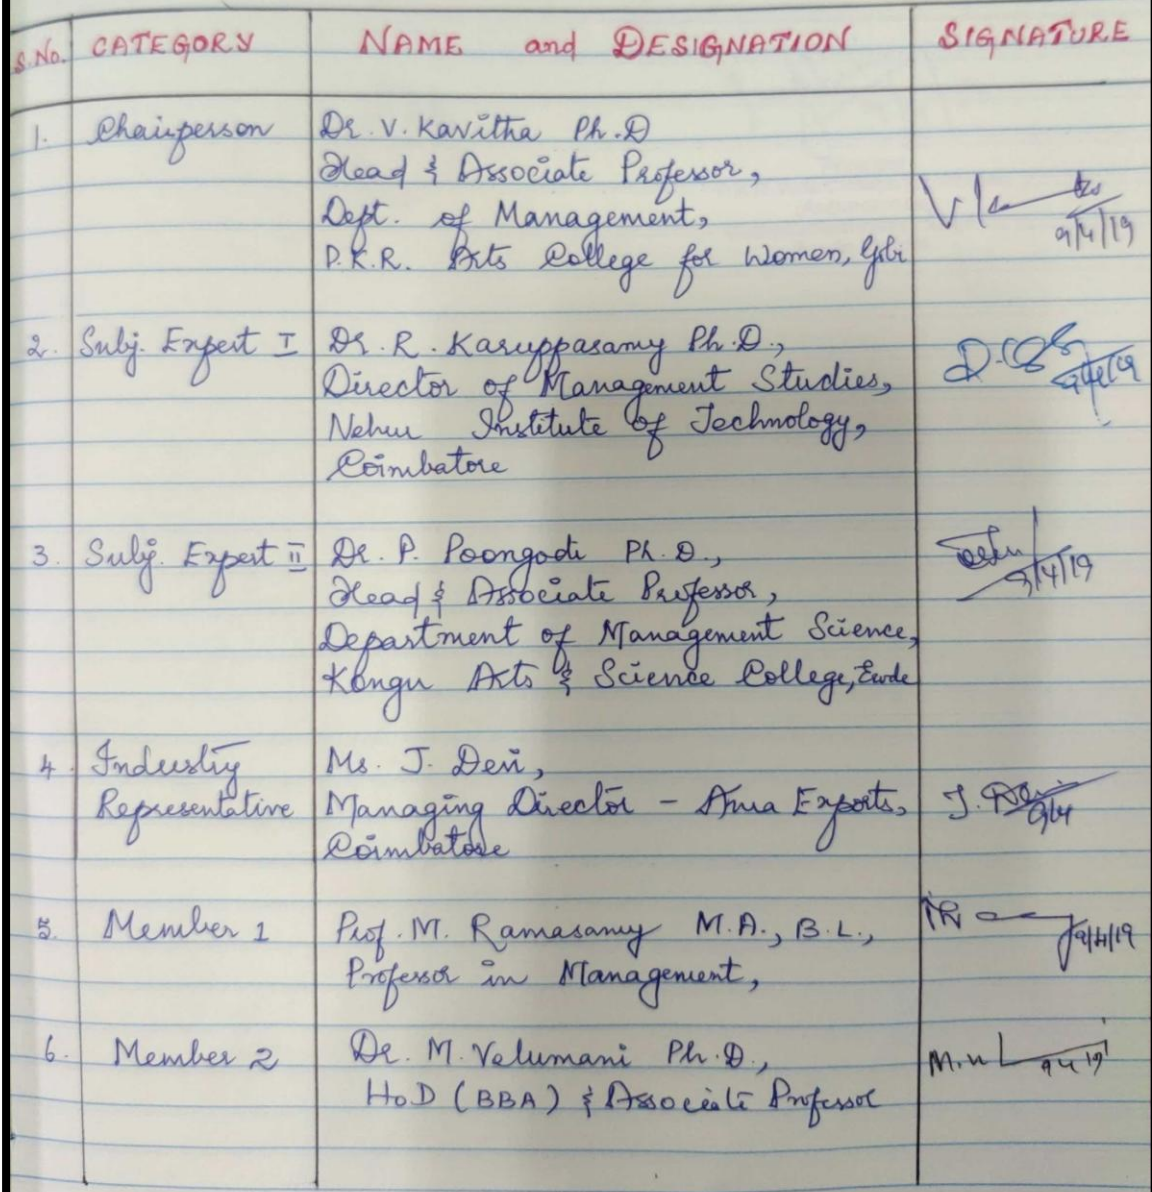 S.No. CATEGORY NAME and DESIGNATION SIGNATURE
1. Chairperson Dr. V. Kavitha Ph.D
Head & Associate Professor,
Dept. of Management,
P.K.R. Arts College for Women, Gobi
9/4/19
2. Subj. Expert I Dr. R. Karuppasamy Ph.D.,
Director of Management Studies,
Nehru Institute of Technology,
Coimbatore
3. Subj. Expert II Dr. P. Poongodi Ph.D.,
Head & Associate Professor,
9/4/19
Department of Management Science,
Kongu Arts & Science College, Erode
4. Industry Ms. J. Devi,
Representative Managing Director - Exports, J. Devi
9/4
Coimbatore
5. Member 1 Prof. M. Ramasamy M.A., B.L.,
9/4/19
Professor in Management,
6. Member 2 Dr. M. Velumani Ph.D.,
9 4 19
HoD (BBA) & Associate Professor